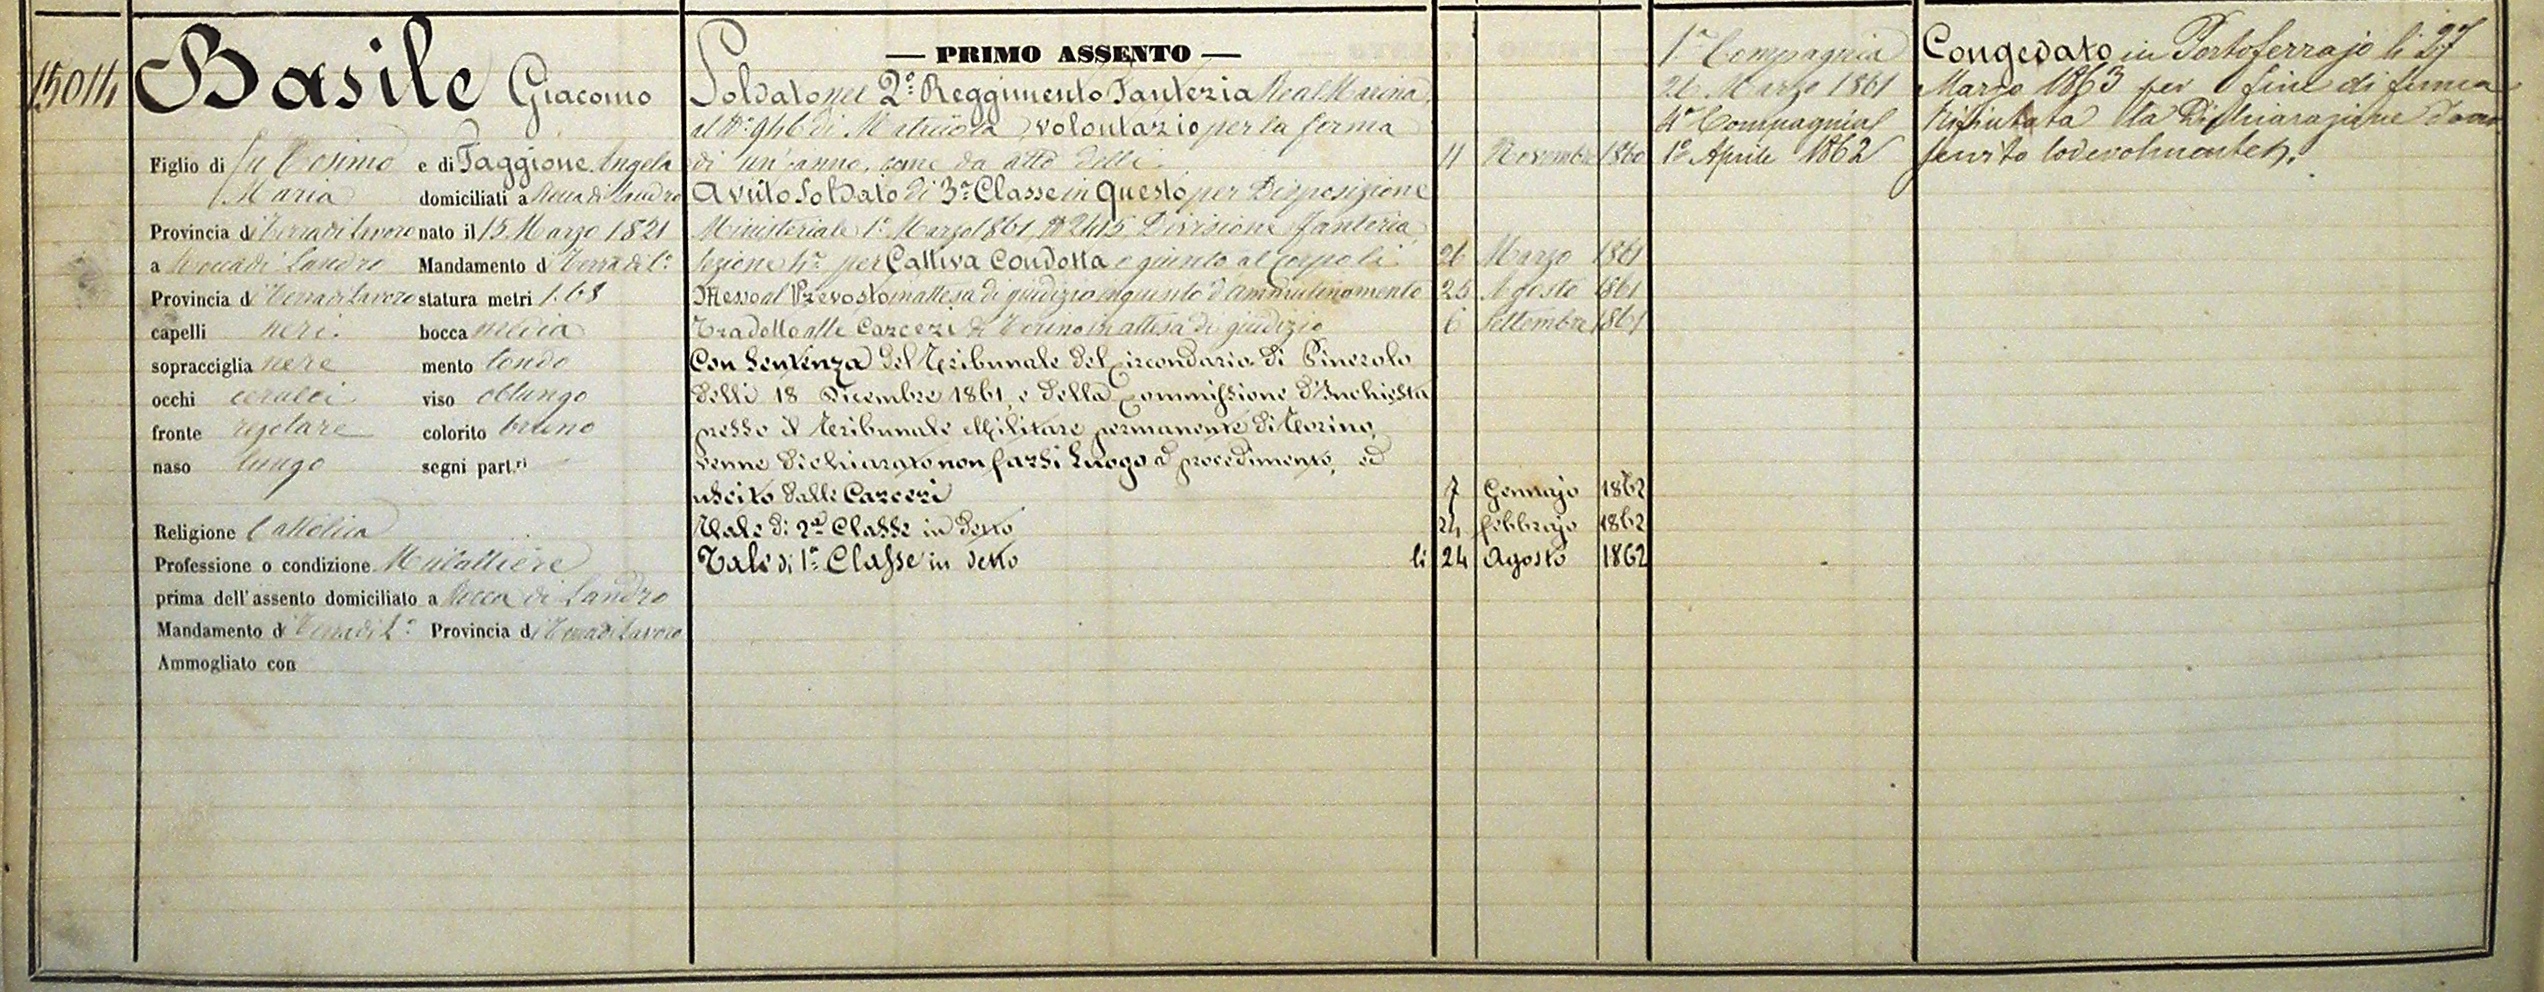 15014
Basile Giacomo
Figlio di fu Cosimo e di Faggione Angela
Maria domiciliati a Rocca di Landro
Provincia di Terra di Lavoro nato il 15 Marzo 1821
a Rocca di Landro Mandamento di Terra di L.º
Provincia di Terra di Lavoro statura metri 1.68
capelli neri. bocca media
sopracciglia nere mento tondo
occhi cerulei viso oblungo
fronte regolare colorito bruno
naso lungo segni part.ri
Religione Cattolica
Professione o condizione Mulattiere
prima dell'assento domiciliato a Rocca di Landro
Mandamento di Terra di L.º Provincia di Terra di Lavoro
Ammogliato con
— PRIMO ASSENTO —
Soldato nel 2º Reggimento Fanteria Real Marina
al Nº 946 di Matricola, volontario per la ferma
di un'anno, come da atto delli 11 Novembre 1860
Avuto Soldato di 3ª Classe in Questo per Disposizione
Ministeriale 1º Marzo 1861, Nº 2415, Divisione Fanteria,
Sezione 4ª per Cattiva Condotta e giunto al Corpo li 26 Marzo 1861
Messo al Prevosto in attesa di giudizio inquisito d'ammutinamento 25 Agosto 1861
Tradotto alle Carceri di Torino in attesa di giudizio 6 Settembre 1861
Con Sentenza del Tribunale del Circondario di Pinerolo
delli 18 Dicembre 1861, e della Commissione d'Inchiesta
presso il Tribunale Militare permanente di Torino,
venne dichiarato non farsi Luogo a procedimento, ed
uscito dalle Carceri 7 Gennajo 1862
Tale di 2ª Classe in detto 24 febbrajo 1862
Tale di 1ª Classe in detto li 24 Agosto 1862
1ª Compagnia
26 Marzo 1861
4ª Compagnia
1º Aprile 1862
Congedato in Portoferrajo li 27
Marzo 1863 per fine di ferma
Rifiutata la Dichiarazione d'aver
servito lodevolmente